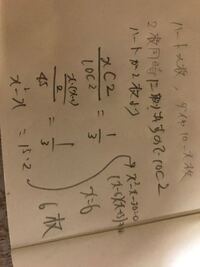 ハート x枚, ダイヤ 10-x枚
2枚同時に取り出すので 10C2
ハートが2枚より
xC2/10C2 = 1/3
x・(x-1)/2 / 45 = 1/3
x²-x = 15・2
x²-x-30=0
(x-6)(x+5)=0
x=6
6枚